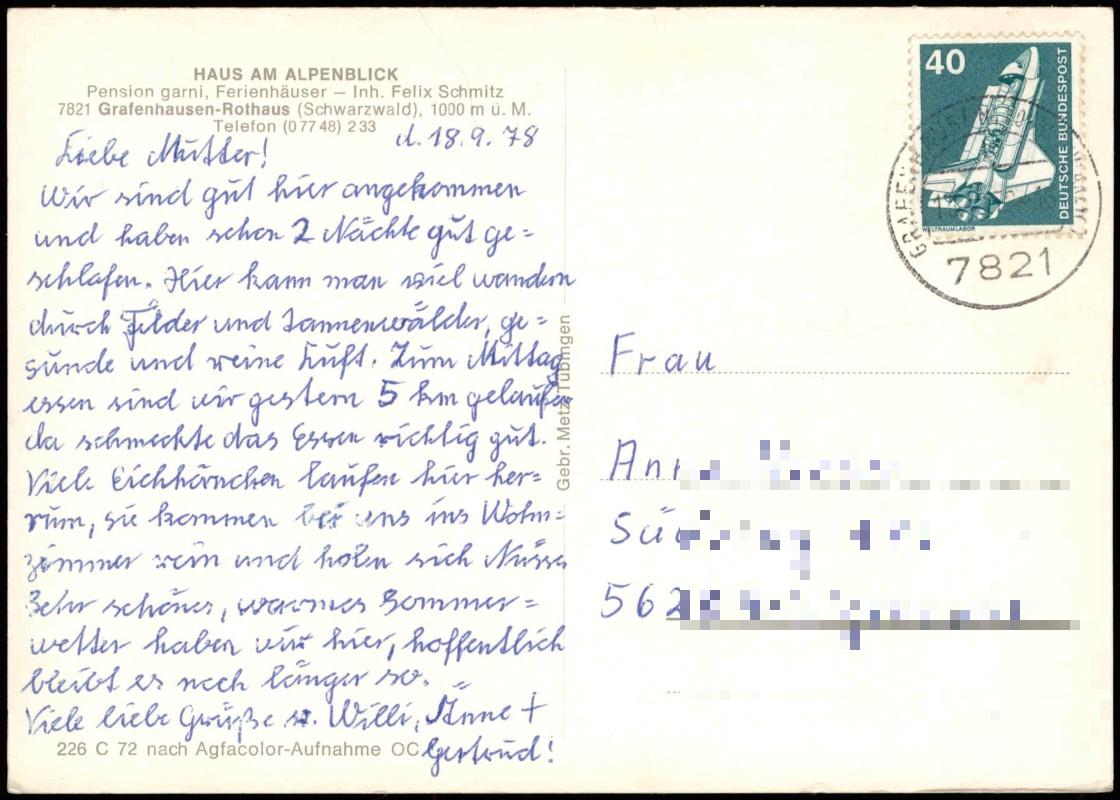 HAUS AM ALPENBLICK
Pension garni, Ferienhäuser – Inh. Felix Schmitz
7821 Grafenhausen-Rothaus (Schwarzwald), 1000 m ü. M.
Telefon (0 77 48) 2 33
d. 18.9.78
Liebe Mutter!
Wir sind gut hier angekommen
und haben schon 2 Nächte gut ge=
schlafen. Hier kann man viel wandern
durch Felder und Tannenwälder, ge=
sunde und reine Luft. Zum Mittag
essen sind wir gestern 5 km gelaufen
da schmeckte das Essen richtig gut.
Viele Eichhörnchen laufen hier her=
rum, sie kommen bei uns ins Wohn=
zimmer rein und holen sich Nüsse
Sehr schönes, warmes Sommer=
wetter haben wir hier, hoffentlich
bleibt es noch länger so.
Viele liebe Grüße v. Willi, Änne +
Gertrud!
226 C 72 nach Agfacolor-Aufnahme OC
Gebr. Metz, Tübingen
40
DEUTSCHE BUNDESPOST
WELTRAUMLABOR
7821
Frau
562